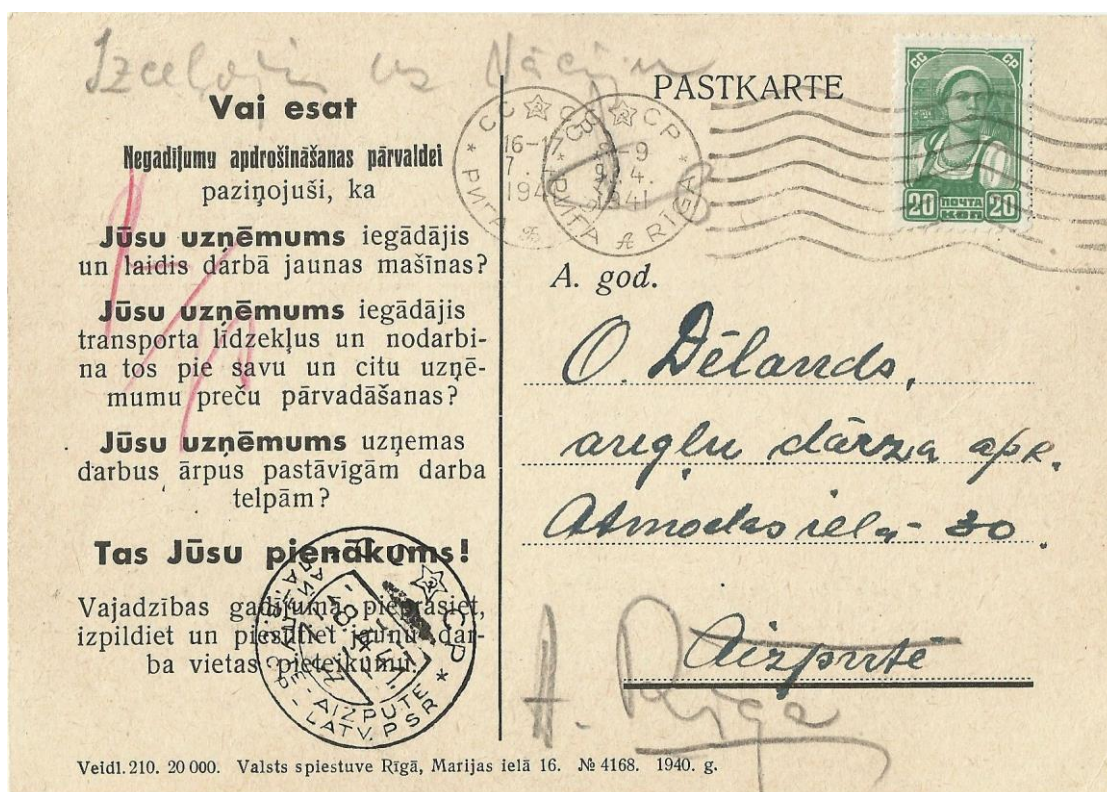 Izceļojis uz Vāciju
Vai esat
Negadījumu apdrošināšanas pārvaldei
paziņojuši, ka
Jūsu uzņēmums iegādājis
un laidis darbā jaunas mašīnas?
Jūsu uzņēmums iegādājis
transporta līdzekļus un nodarbi-
na tos pie savu un citu uzņē-
mumu preču pārvadāšanas?
Jūsu uzņēmums uzņemas
darbus ārpus pastāvīgām darba
telpām?
Tas Jūsu pienākums!
Vajadzības gadījumā pieprasiet,
izpildiet un piesūtiet jaunu dar-
ba vietas pieteikumu.
СССР
AIZPUTE
LATV. PSR
Veidl. 210. 20 000. Valsts spiestuve Rīgā, Marijas ielā 16. № 4168. 1940. g.
PASTKARTE
СССР
16-17
РИГА
СССР
8-9
1941
РИГА A RIGA
СС СР
20 ПОЧТА 20
КОП
A. god.
O. Dēlands,
augļu dārza apk.
Atmodas ielā - 30.
Aizputē
Rīga